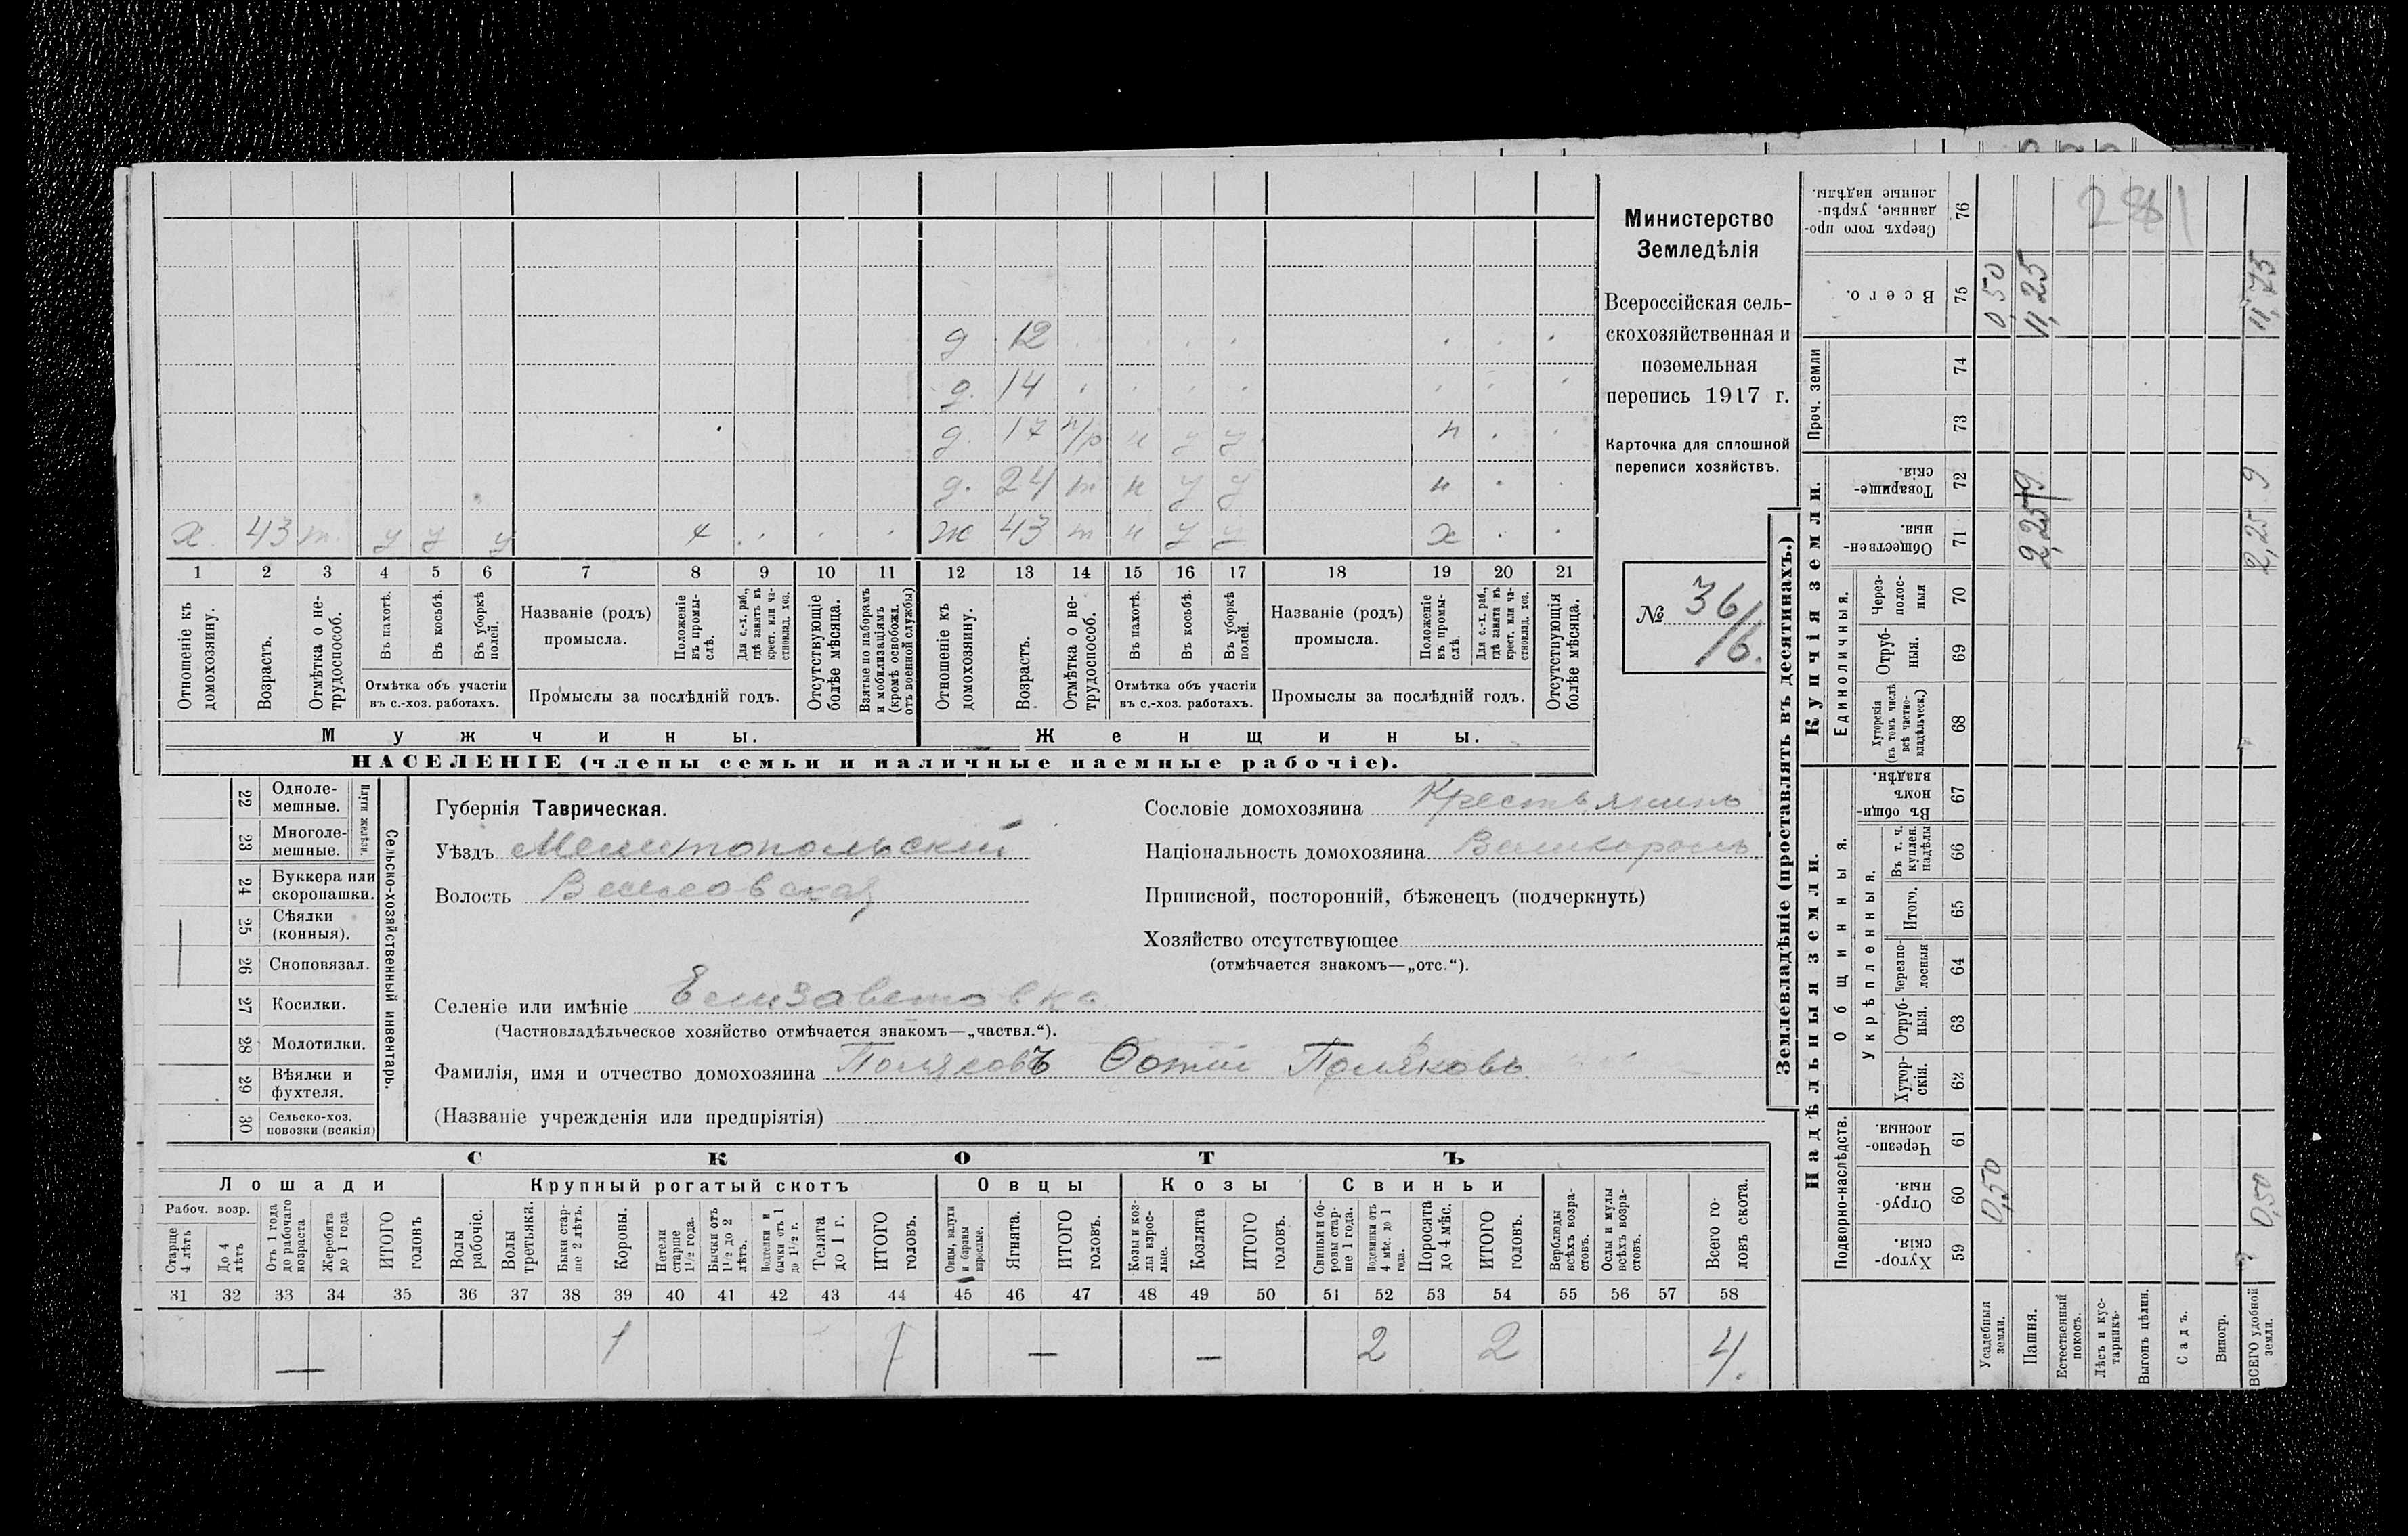 Министерство
Земледѣлія
Всероссійская сель-
скохозяйственная и
поземельная
перепись 1917 г.
Карточка для сплошной
переписи хозяйствъ.
№ 36/16.
281
д 12
д. 14
д. 17 н/р н у у н
д. 24 т н у у н
х 43 т. у у у х ж 43 т н у у х
1 2 3 4 5 6 7 8 9 10 11 12 13 14 15 16 17 18 19 20 21
Отношеніе къ домохозяину.
Возрастъ.
Отмѣтка о не-трудоспособ.
Въ пахотѣ.
Въ косьбѣ.
Въ уборкѣ полей.
Отмѣтка объ участіи въ с.-хоз. работахъ.
Названіе (родъ) промысла.
Положеніе въ промы-слѣ.
Для с.-х. раб., гдѣ занятъ въ крест. или ча-стновлад. хоз.
Промыслы за послѣдній годъ.
Отсутствующіе болѣе мѣсяца.
Взятые по наборамъ и мобилизаціямъ (кромѣ освобожд. отъ военной службы)
Отношеніе къ домохозяину.
Возрастъ.
Отмѣтка о не-трудоспособ.
Въ пахотѣ.
Въ косьбѣ.
Въ уборкѣ полей.
Отмѣтка объ участіи въ с.-хоз. работахъ.
Названіе (родъ) промысла.
Положеніе въ промы-слѣ.
Для с.-х. раб., гдѣ занята въ крест. или ча-стновлад. хоз.
Промыслы за послѣдній годъ.
Отсутствующія болѣе мѣсяца.
Мужчины. Женщины.
НАСЕЛЕНІЕ (члены семьи и наличные наемные рабочіе).
Сельско-хозяйственный инвентарь.
Плуги желѣзн.
22 Однолe-мешные.
23 Многоле-мешные.
24 Буккера или скоропашки.
25 Сѣялки (конныя).
26 Сноповязал.
27 Косилки.
28 Молотилки.
29 Вѣялки и фухтеля.
30 Сельско-хоз. повозки (всякія)
Губернія Таврическая.
Уѣздъ Мелитопольскій
Волость
Сословіе домохозяина Крестьянинъ
Національность домохозяина Великороссъ.
Приписной, посторонній, бѣженецъ (подчеркнуть)
Хозяйство отсутствующее
(отмѣчается знакомъ—„отс.“).
Селеніе или имѣніе Елизаветовка
(Частновладѣльческое хозяйство отмѣчается знакомъ—„частвл.“).
Фамилія, имя и отчество домохозяина Поляковъ Фотій Поляковъ
(Названіе учрежденія или предпріятія)
СКОТЪ
Лошади Крупный рогатый скотъ Овцы Козы Свиньи
Рабоч. возр.
Старше 4 лѣтъ
До 4 лѣтъ
Отъ 1 года до рабочаго возраста
Жеребята до 1 года
ИТОГО головъ
Волы рабочіе.
Волы третьяки.
Быки стар-ше 2 лѣтъ.
Коровы.
Нетели старше 1½ года.
Бычки отъ 1½ до 2 лѣтъ.
Подтелки и бычки отъ 1 до 1½ г.
Телята до 1 г.
ИТОГО головъ.
Овцы, валухи и бараны взрослые.
Ягнята.
ИТОГО головъ.
Козы и коз-лы взрос-лые.
Козлята
ИТОГО головъ.
Свиньи и бо-ровы стар-ше 1 года.
Подсвинки отъ 4 мѣс. до 1 года.
Поросята до 4 мѣс.
ИТОГО головъ.
Верблюды всѣхъ возра-стовъ.
Ослы и мулы всѣхъ возра-стовъ.
Всего го-ловъ скота.
31 32 33 34 35 36 37 38 39 40 41 42 43 44 45 46 47 48 49 50 51 52 53 54 55 56 57 58
— 1 1 — — 2 2 4.
Землевладѣніе (проставлять въ десятинахъ.)
Надѣльныя земли. Купчія земли. Проч. земли
Подворно-наслѣдств. Общинныя. Единоличныя.
Укрѣпленныя.
Хутор-скія. 59
Отруб-ныя. 60
Черезпо-лосныя. 61
Хутор-скія. 62
Отруб-ныя. 63
Черезпо-лосныя 64
Итого. 65
Въ т. ч. куплен. надѣлы 66
Въ общин-номъ владѣн. 67
Хуторскія (въ томъ числѣ всѣ частно-владѣльческ.) 68
Отруб-ныя. 69
Через-полос-ныя 70
Обществен-ныя. 71
Товарище-скія. 72
73
74
Всего. 75
Сверхъ того про-данные, укрѣп-ленные надѣлы. 76
Усадебныя земли. 0,50 0,50
Пашня. 2,25 9 11,25
Естественный покосъ.
Лѣсъ и кус-тарникъ.
Выгонъ цѣлин.
Садъ.
Виногр.
ВСЕГО удобной земли. 0,50 2,25 9 11,75